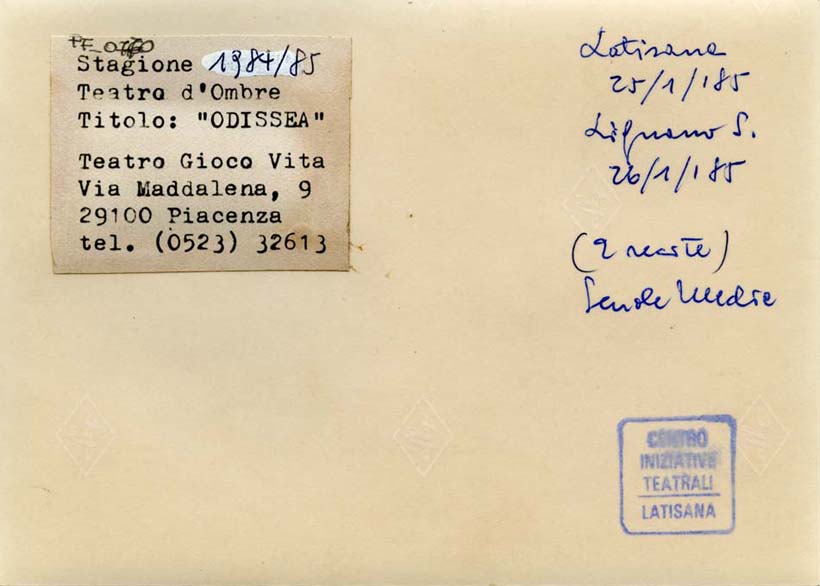 Stagione 1984/85
Teatro d'Ombre
Titolo: "ODISSEA"
Teatro Gioco Vita
Via Maddalena, 9
29100 Piacenza
tel. (0523) 32613
Latisana
25/1/'85
Lignano S.
26/1/'85
(2 recite)
Scuole Medie
CENTRO
INIZIATIVE
TEATRALI
LATISANA